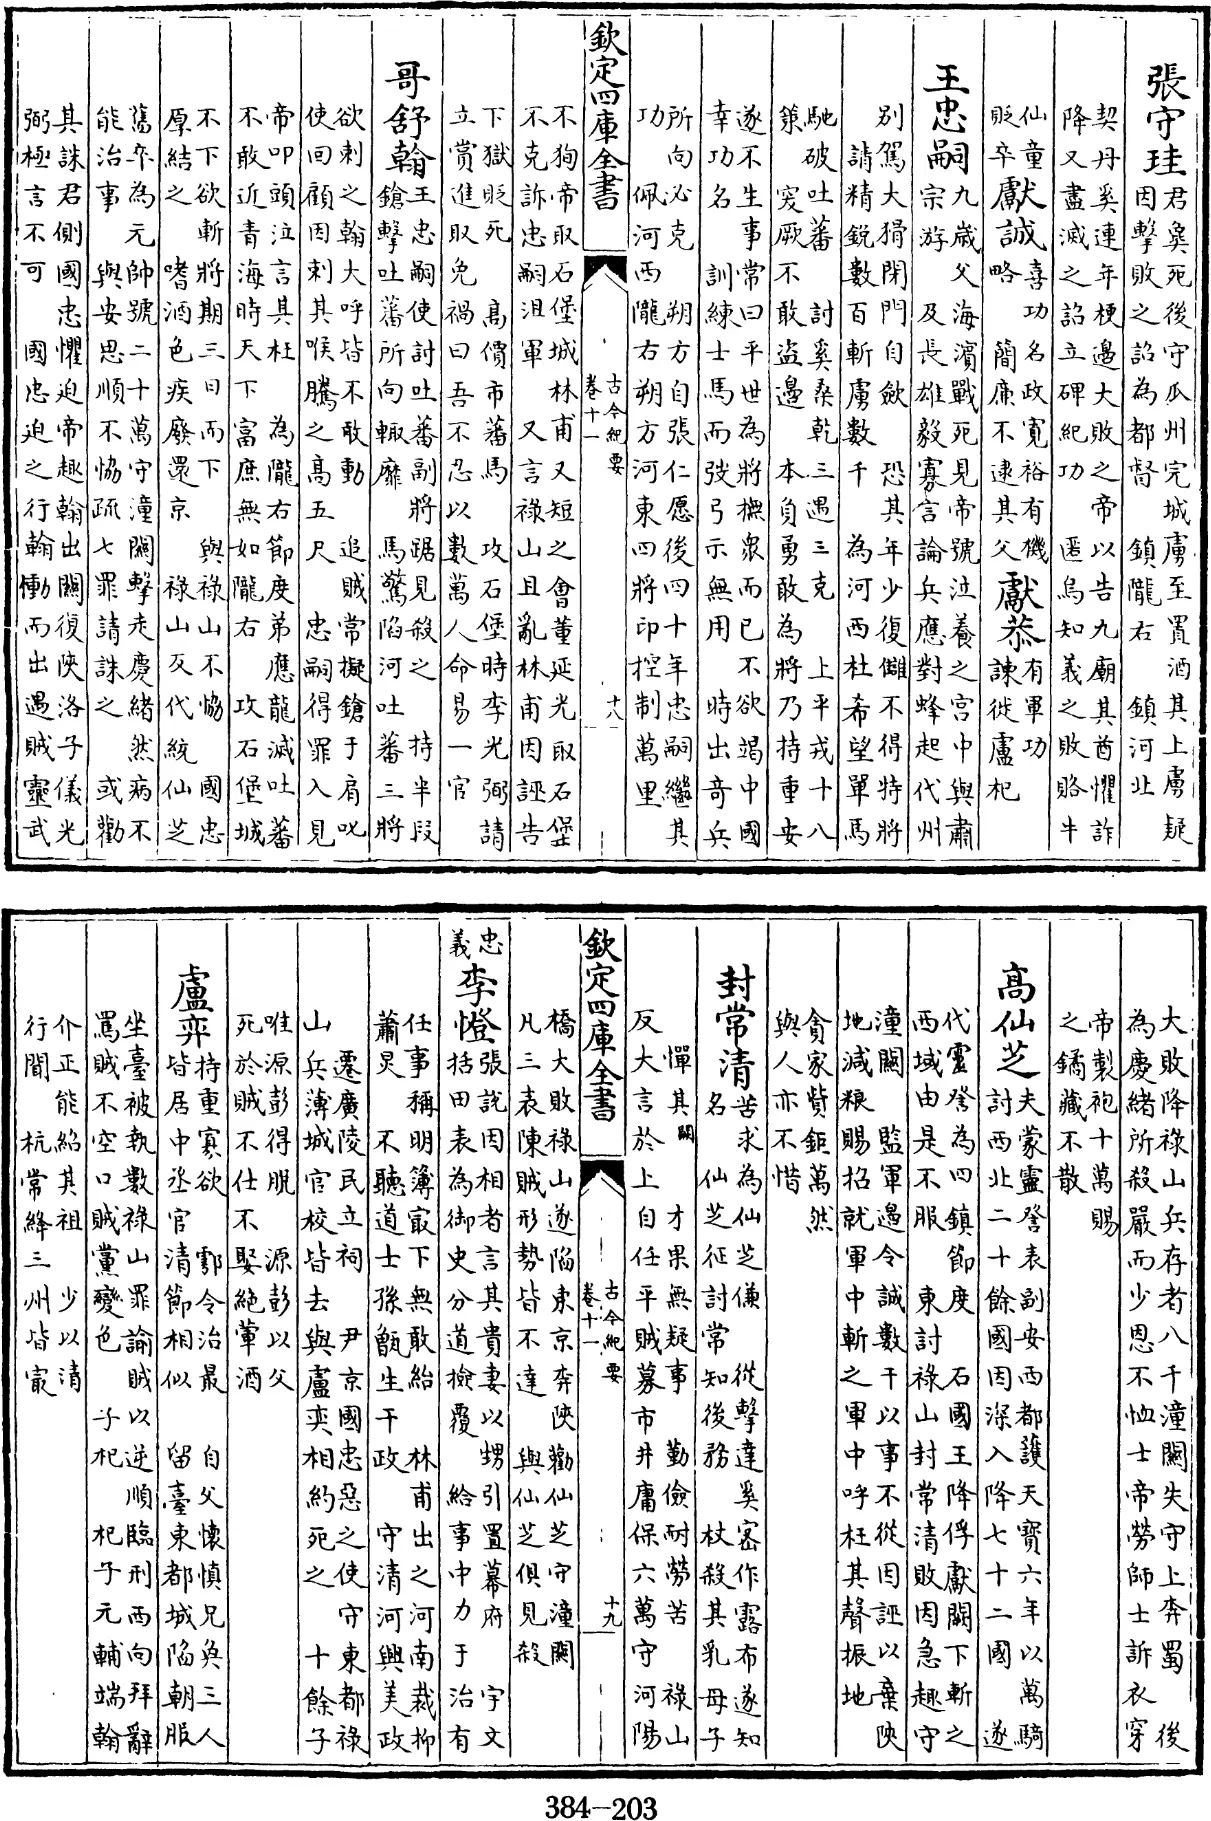 張守珪君奚死後守瓜州完城虜至置酒其上虜疑
因擊敗之詔為都督 鎮隴右 鎮河北
契丹奚連年梗邊大敗之帝以告九廟其酋懼詐
降又盡滅之詔立碑紀功 匿烏知義之敗賂牛
仙童
貶卒
獻誠喜功名政寛裕有機
略 簡廉不逮其父
獻恭有軍功
諫徙盧杞
王忠嗣九歲父海濱戰死見帝號泣養之宫中與肅
宗游 及長雄毅寡言論兵應對蜂起代州
别駕大猾閉門自歛 恐其年少復讎不得特將
請精鋭數百斬虜數千 為河西杜希望單馬
馳破吐蕃 討奚桑乾三遇三克 上平戎十八
策 突厥不敢盗邊 本負勇敢為將乃持重安
遂不生事常曰平世為將撫衆而已不欲竭中國
幸功名 訓練士馬而弢弓示無用 時出奇兵
所向必克 朔方自張仁愿後四十年忠嗣繼其
功 佩河西隴右朔方河東四將印控制萬里
欽定四庫全書
古今紀要
卷十一
十八
不狥帝取石堡城林甫又短之會董延光取石堡
不克訴忠嗣沮軍 又言祿山且亂林甫因誣告
下獄貶死 高價市蕃馬 攻石堡時李光弼請
立賞進取免禍曰吾不忍以數萬人命易一官
哥舒翰王忠嗣使討吐蕃副將踞見殺之 持半段
鎗擊吐蕃所向輙靡 馬驚陷河吐蕃三將
欲刺之翰大呼皆不敢動 追賊常擬鎗于肩叱
使回顧因刺其喉騰之高五尺 忠嗣得罪入見
帝叩頭泣言其枉 為隴右節度弟應龍滅吐蕃
不敢近青海時天下富庶無如隴右 攻石堡城
不下欲斬將期三日而下 與祿山不恊 國忠
厚結之 嗜酒色疾廢還京 祿山反代統仙芝
舊卒為元帥號二十萬守潼關擊走慶緒然病不
能治事 與安思順不恊疏七罪請誅之 或勸
其誅君側國忠懼迫帝趣翰出關復陜洛子儀光
弼極言不可 國忠迫之行翰慟而出遇賊靈武
大敗降祿山兵存者八千潼關失守上奔蜀 後
為慶緒所殺嚴而少恩不恤士帝勞師士訴衣穿
帝製袍十萬賜
之鐍藏不散
高仙芝夫蒙靈詧表副安西都護天寶六年以萬騎
討西北二十餘國因深入降七十二國 遂
代靈詧為四鎮節度 石國王降俘獻闕下斬之
西域由是不服 東討祿山封常清敗因急趣守
潼關 監軍邉令誠數干以事不從因誣以棄陜
地減粮賜招就軍中斬之軍中呼枉其聲振地
貪家貲鉅萬然
與人亦不惜
封常清苦求為仙芝傔 從擊達奚密作露布遂知
名 仙芝征討常知後務 杖殺其乳母子
憚其嚴 才果無疑事 勤儉耐勞苦 祿山
反大言於上自任平賊募市井庸保六萬守河陽
欽定四庫全書
古今紀要
卷十一
十九
橋大敗祿山遂陷東京奔陜勸仙芝守潼關
凡三表陳賊形勢皆不達 與仙芝俱見殺
忠義
李憕張說因相者言其貴妻以甥引置幕府 宇文
括田表為御史分道撿覆 給事中力于治有
任事稱明簿冣下無敢紿 林甫出之河南裁抑
蕭炅 不聽道士孫甑生干政 守清河興美政
遷廣陵民立祠 尹京國忠惡之使守東都祿
山兵薄城官校皆去與盧奕相約死之 十餘子
唯源彭得脱 源彭以父
死於賊不仕不娶絶葷酒
盧弈持重寡欲 鄠令治最 自父懷慎兄奐三人
皆居中丞官清節相似 留臺東都城陷朝服
坐臺被執數祿山罪諭賊以逆順臨刑西向拜辭
罵賊不空口賊黨變色 子杞 杞子元輔端翰
介正能紹其祖 少以清
行聞 杭常絳三州皆冣
384-203